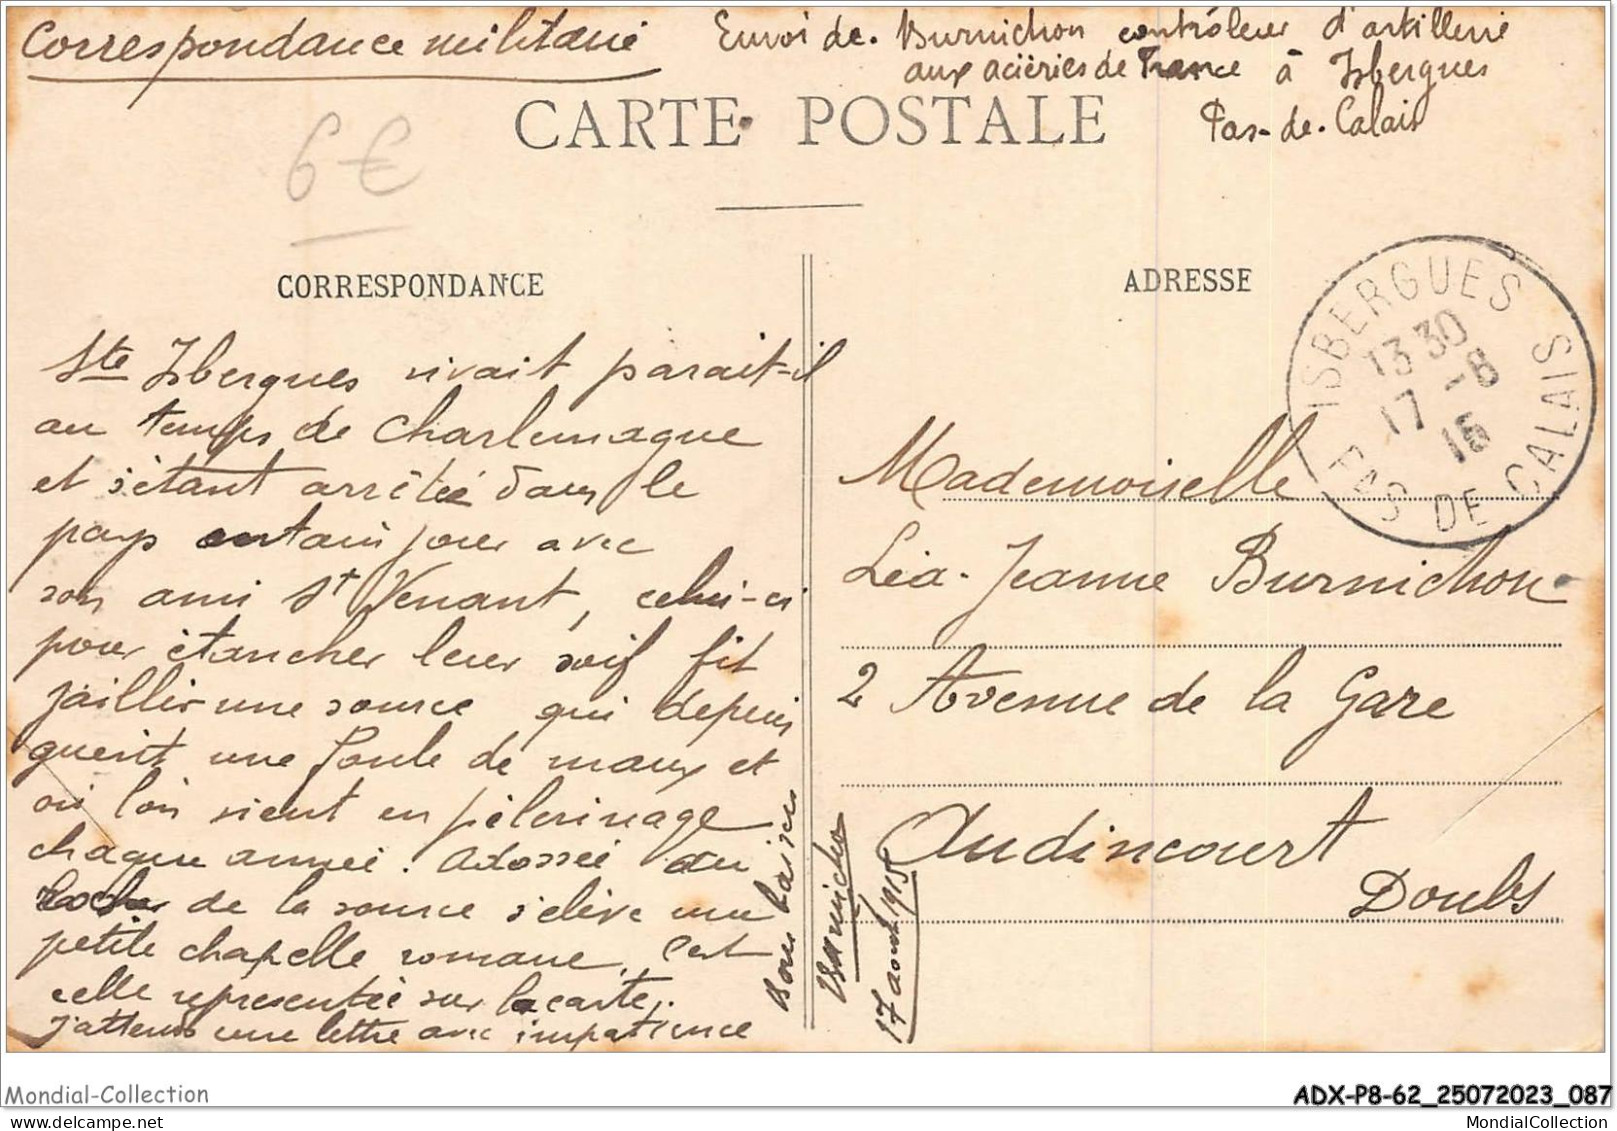 Correspondance militaire
Envoi de. Burnichon contrôleur d'artillerie
aux aciéries de France à Isbergues
Pas-de-Calais
CARTE POSTALE
6€
CORRESPONDANCE
ADRESSE
ISBERGUES
13 30
17 -8
15
PAS DE CALAIS
Ste Isbergues vivait parait-il
au temps de Charlemagne
et s'étant arrêtée dans le
pays certain jour avec
son ami St Venant, celui-ci
pour étancher leur soif fit
jaillir une source qui depuis
guerit une foule de maux et
où l'on vient en pélerinage
chaque année. Adossée au
rocher de la source s'élève une
petite chapelle romane. C'est
celle représentée sur la carte.
J'attends une lettre avec impatience
Bons baisers
Burnichon
17 août 1915
Mademoiselle
Léa-Jeanne Burnichon
2 Avenue de la Gare
Audincourt
Doubs
Mondial-Collection
ADX-P8-62_25072023_087
MondialCollection